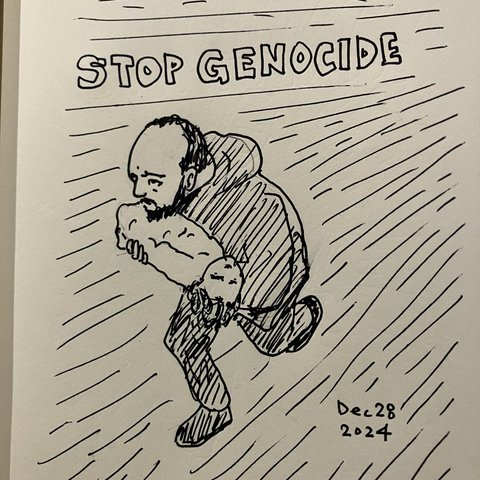 STOP GENOCIDE
Dec 28
2024